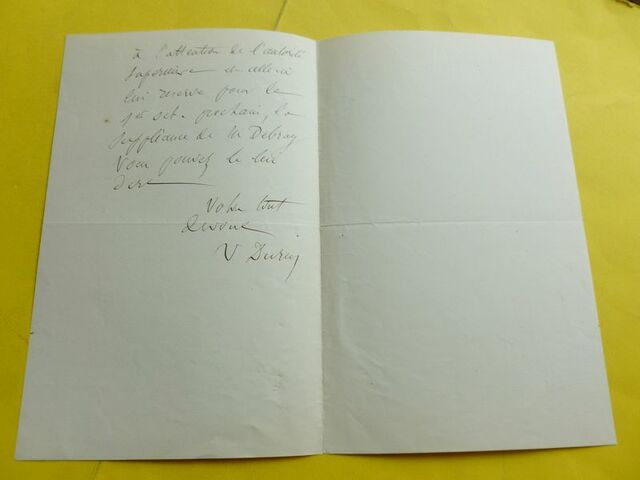 à l'attention de l'autorité
supérieure et celle-ci
lui réserve pour le
1er oct. prochain, la
suppléance de M Debray
Vous pouvez le lui
dire
Votre tout
dévoué
V Duruy